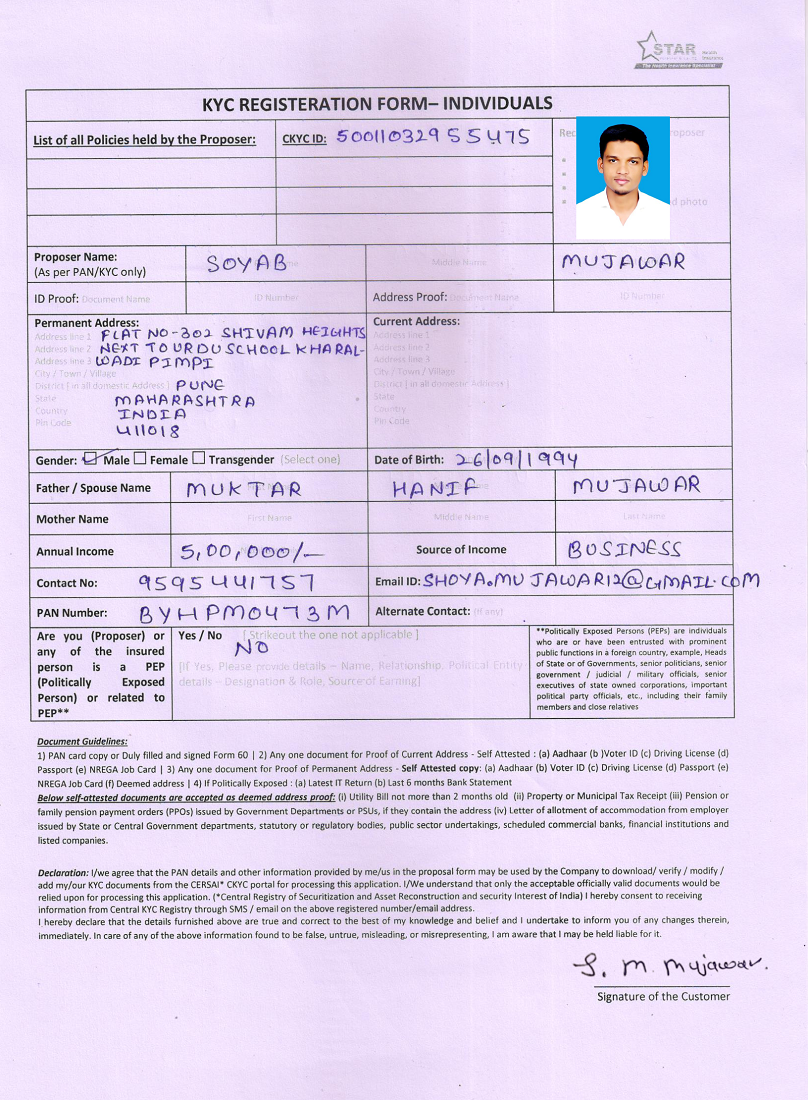 STAR Health Insurance
The Health Insurance Specialist
KYC REGISTERATION FORM– INDIVIDUALS
List of all Policies held by the Proposer:
CKYC ID: 50011032955475
Proposer Name:
(As per PAN/KYC only)
SOYAB
Middle Name
MUJAWAR
ID Proof: Document Name
ID Number
Address Proof: Document Name
ID Number
Permanent Address:
Address line 1 FLAT NO-302 SHIVAM HEIGHTS
Address line 2 NEXT TO URDU SCHOOL KHARAL-
Address line 3 WADI PIMPI
City / Town / Village
District [in all domestic Address) PUNE
State MAHARASHTRA
Country INDIA
Pin Code 411018
Current Address:
Address line 1
Address line 2
Address line 3
City / Town / Village
District [in all domestic Address)
State
Country
Pin Code
Gender: Male Female Transgender (Select one)
Date of Birth: 26/09/1994
Father / Spouse Name MUKTAR HANIF MUJAWAR
Mother Name First Name Middle Name Last Name
Annual Income 5,00,000/-
Source of Income BUSINESS
Contact No: 9595441757
Email ID: SHOYA.MUJAWAR12@GMAIL.COM
PAN Number: BYHPM0473M
Alternate Contact: (If any)
Are you (Proposer) or
any of the insured
person is a PEP
(Politically Exposed
Person) or related to
PEP**
Yes / No [ Strikeout the one not applicable ]
NO
[If Yes, Please provide details – Name, Relationship, Political Entity
details – Designation & Role, Source of Earning]
**Politically Exposed Persons (PEPs) are individuals
who are or have been entrusted with prominent
public functions in a foreign country, example, Heads
of State or of Governments, senior politicians, senior
government / judicial / military officials, senior
executives of state owned corporations, important
political party officials, etc., including their family
members and close relatives
Document Guidelines:
1) PAN card copy or Duly filled and signed Form 60 | 2) Any one document for Proof of Current Address - Self Attested : (a) Aadhaar (b )Voter ID (c) Driving License (d)
Passport (e) NREGA Job Card | 3) Any one document for Proof of Permanent Address - Self Attested copy: (a) Aadhaar (b) Voter ID (c) Driving License (d) Passport (e)
NREGA Job Card (f) Deemed address | 4) If Politically Exposed : (a) Latest IT Return (b) Last 6 months Bank Statement
Below self-attested documents are accepted as deemed address proof: (i) Utility Bill not more than 2 months old (ii) Property or Municipal Tax Receipt (iii) Pension or
family pension payment orders (PPOs) issued by Government Departments or PSUs, if they contain the address (iv) Letter of allotment of accommodation from employer
issued by State or Central Government departments, statutory or regulatory bodies, public sector undertakings, scheduled commercial banks, financial institutions and
listed companies.
Declaration: I/we agree that the PAN details and other information provided by me/us in the proposal form may be used by the Company to download/ verify / modify /
add my/our KYC documents from the CERSAI* CKYC portal for processing this application. I/We understand that only the acceptable officially valid documents would be
relied upon for processing this application. (*Central Registry of Securitization and Asset Reconstruction and security Interest of India) I hereby consent to receiving
information from Central KYC Registry through SMS / email on the above registered number/email address.
I hereby declare that the details furnished above are true and correct to the best of my knowledge and belief and I undertake to inform you of any changes therein,
immediately. In care of any of the above information found to be false, untrue, misleading, or misrepresenting, I am aware that I may be held liable for it.
S. M. Mujawar.
Signature of the Customer